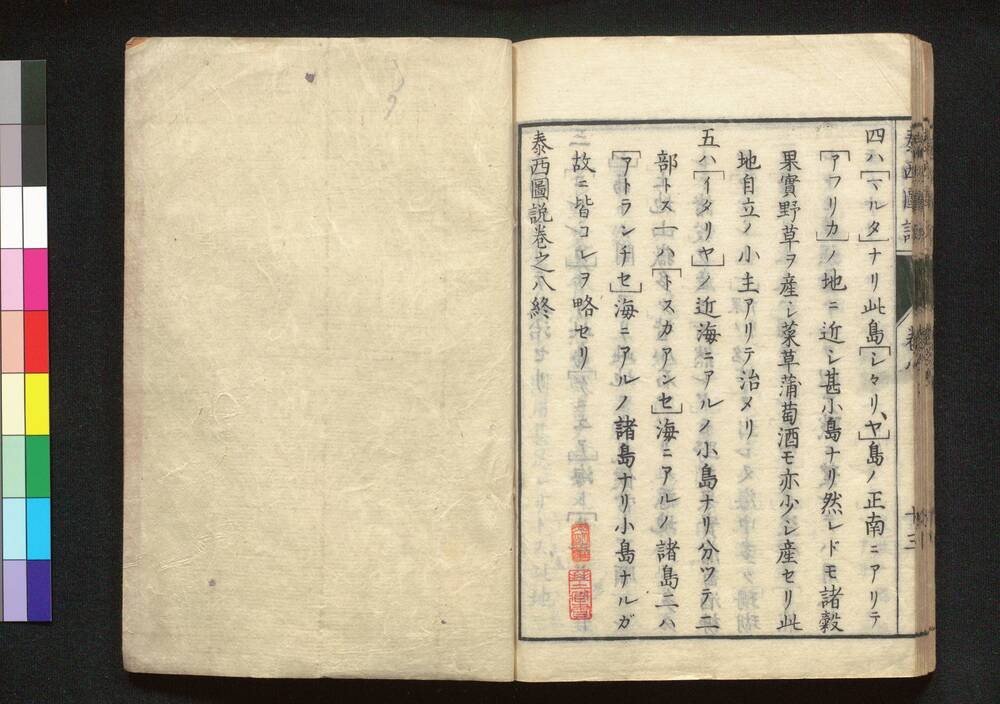 四ハ[マルタ]ナリ此島[シヽリ、ヤ]島ノ正南ニアリテ
[アフリカ]ノ地ニ近シ甚小島ナリ然レドモ諸穀
果實野草ヲ産シ菜草蒲萄酒モ亦少シ産セリ此
地自立ノ小主アリテ治メリ
五ハ[イタリヤ]ノ近海ニアルノ小島ナリ分ツテ二
部トス一ハ[トスカアンセ]海ニアルノ諸島二ハ
[アトランチセ]海ニアルノ諸島ナリ小島ナルガ
故ニ皆コレヲ略セリ
泰西圖説巻之八終
泰西圖説
巻八
十三